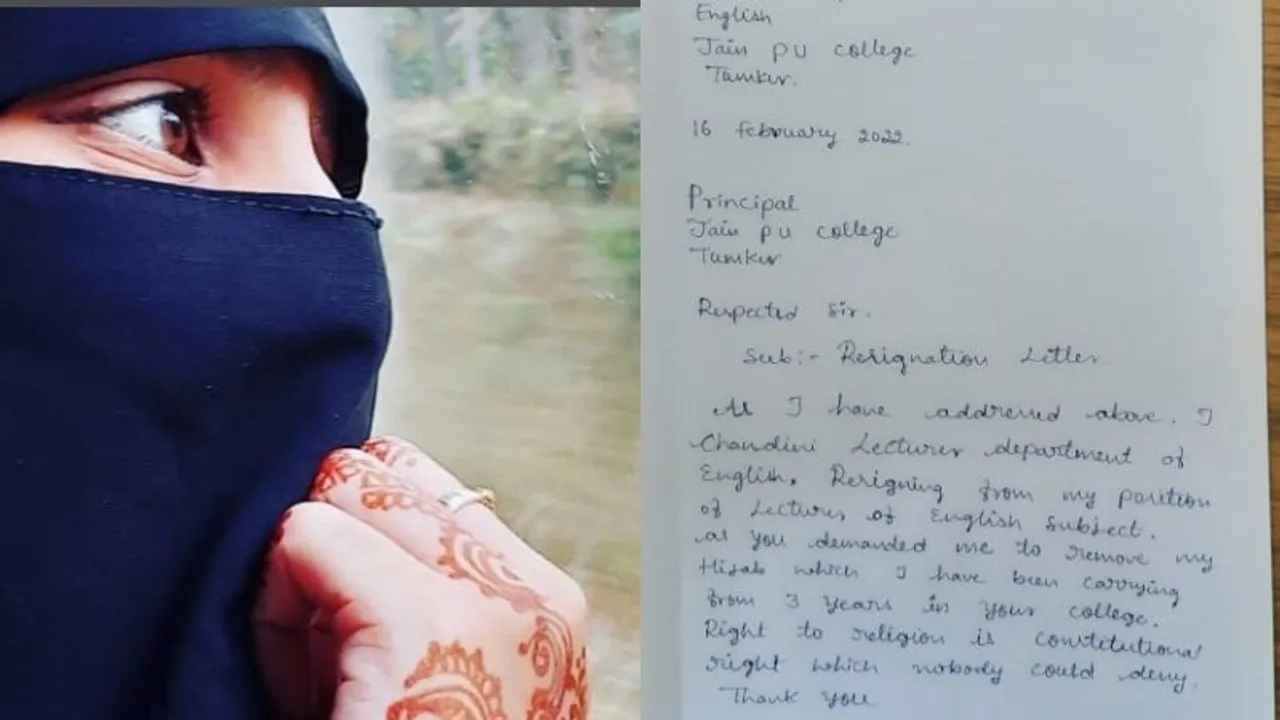 English
Jain PU college
Tumkur.
16 February 2022.
Principal
Jain PU college
Tumkur
Respected Sir.
Sub:- Resignation Letter
As I have addressed above. I
Chandini Lecturer department of
English. Resigning from my position
of Lecturer of English Subject.
as you demanded me to remove my
Hijab which I have been carrying
from 3 years in your college.
Right to religion is constitutional
right which nobody could deny.
Thank you